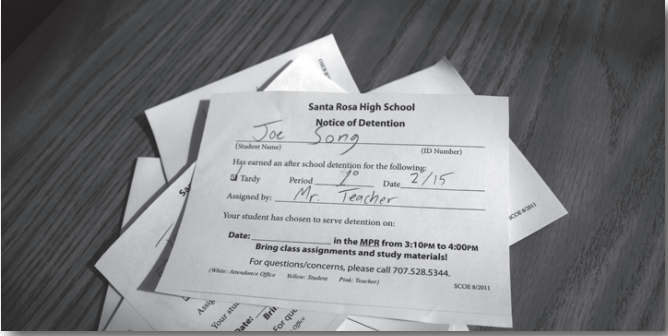 Santa Rosa High School
Notice of Detention
Joe Song
(Student Name) (ID Number)
Has earned an after school detention for the following:
Tardy Period 1° Date 2/15
Assigned by: Mr. Teacher
Your student has chosen to serve detention on:
Date: in the MPR from 3:10PM to 4:00PM
Bring class assignments and study materials!
For questions/concerns, please call 707.528.5344.
(White: Attendance Office Yellow: Student Pink: Teacher)
SCOE 8/2011
SCOE 8/2011
Your
Date:
For
Office